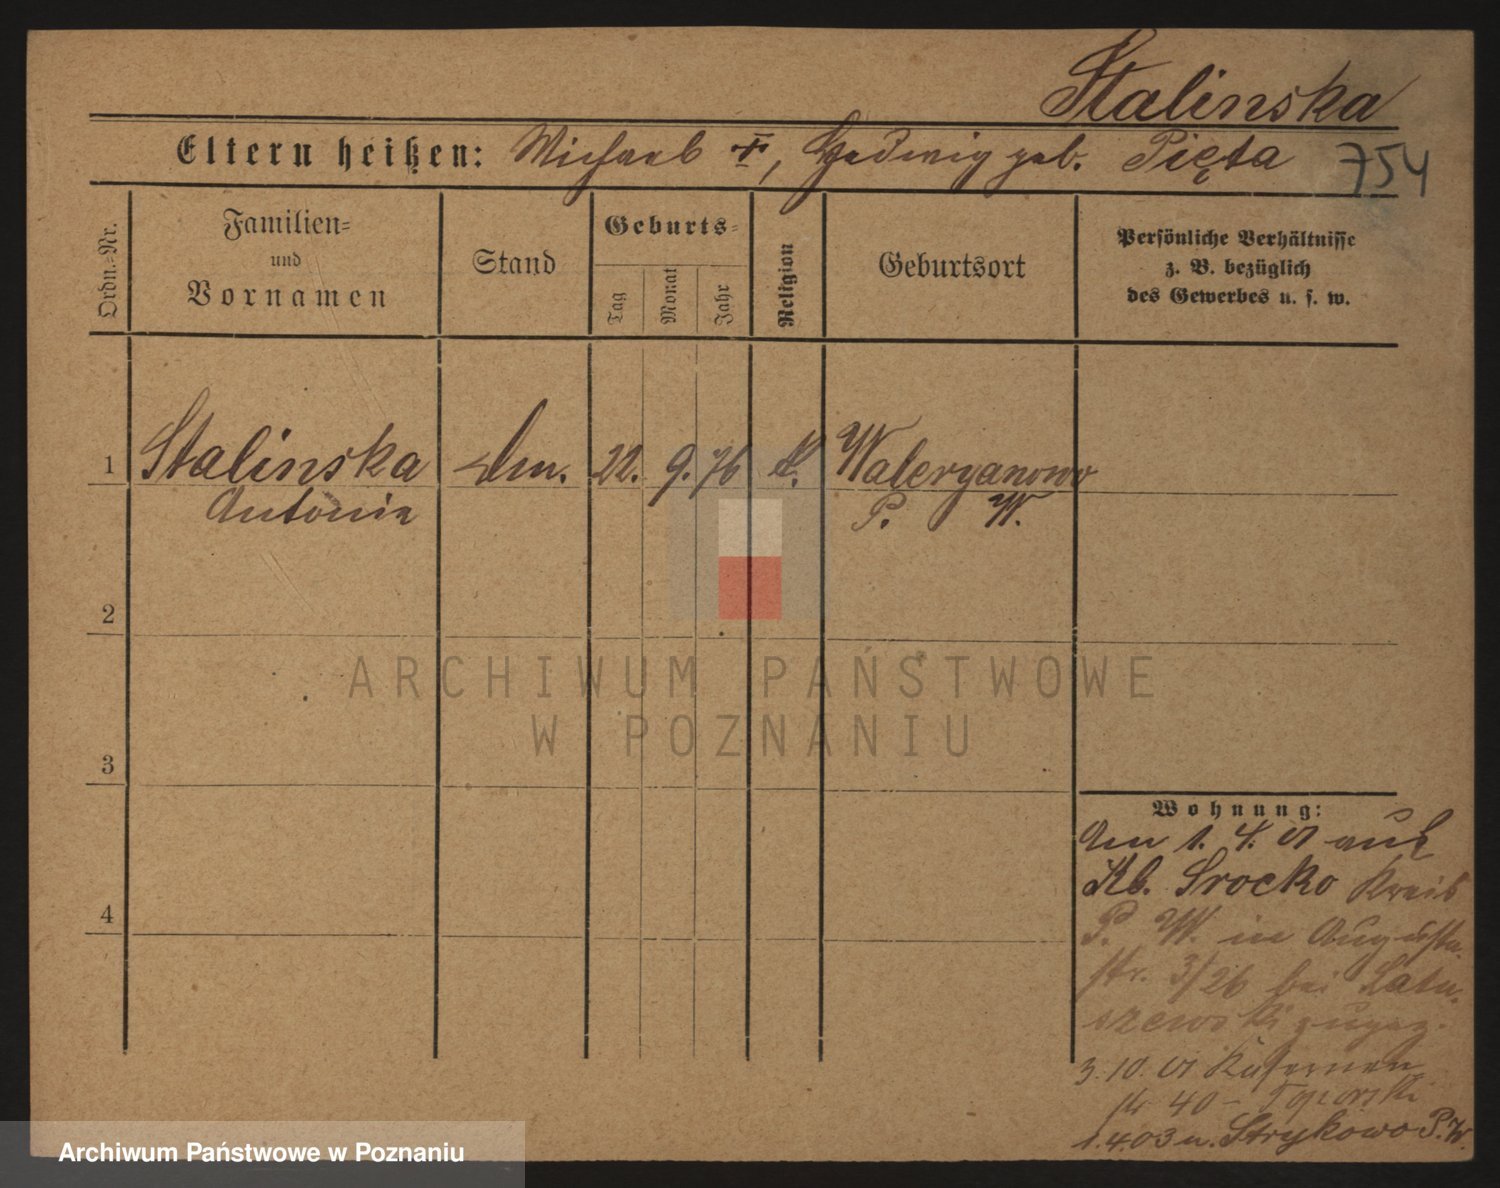 Stalinska
Eltern heißen: Michael †, Hedwig geb. Pięta
754
Ordn.-Nr.
Familien-
und
Vornamen
Stand
Geburts-
Tag
Monat
Jahr
Religion
Geburtsort
Persönliche Verhältnisse
z. B. bezüglich
des Gewerbes u. s. w.
1 Stalinska 22. 9. 76 k. Waleryanowo
Antonie P. W.
2
3
4
Wohnung:
Am 1. 4. 01 aus
Kl. Srocko Kreis
P. W. in Augusta
str. 3/26 bei Latu-
szewski zugez.
3. 10. 01 Kasernen
str 40 -
1.4.03 n. Strykowo P. W.
ARCHIWUM PAŃSTWOWE
W POZNANIU
Archiwum Państwowe w Poznaniu